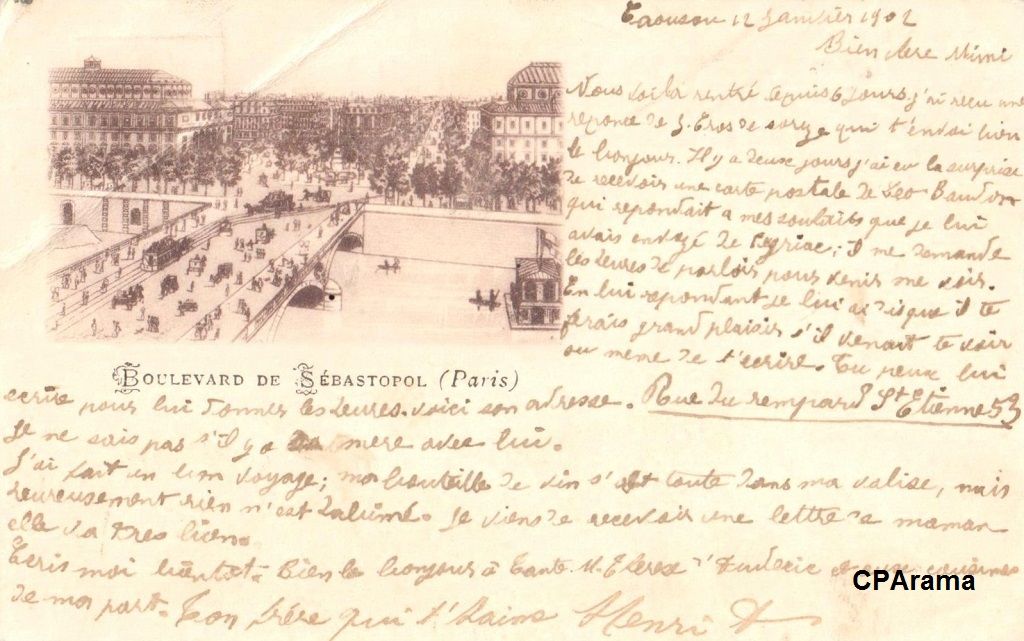 12 Janvier 1902
Bien chere Mimi
Nous voila rentré depuis 6 jours j'ai reçu une
reponce de J. qui t'envoi bien
le bonjour. Il y a deux jours j'ai eu la surprise
de recevoir une carte postale de Leo
qui repondait a mes souhaits que je lui
avais envoyé de ; il me demande
les heures de parloir pour venir me voir.
En lui repondant je lui ai dis que il te
ferais grand plaisir s'il venait te voir
ou meme de t'ecrire. Tu peux lui
BOULEVARD DE SÉBASTOPOL (Paris)
ecrire pour lui donner les heures. voici son adresse. Rue du rempard St Etienne
je ne sais pas s'il y a sa mere avec lui.
J'ai fait un bon voyage; ma bouteille de vin s'est toute dans ma valise, mais
heureusement rien n'est . Je viens de recevoir une lettre de maman
elle va tres bien.
Ecris moi bientot. Bien le bonjour à Tante cousines
de ma part. Ton frère qui t' Henri
CPArama